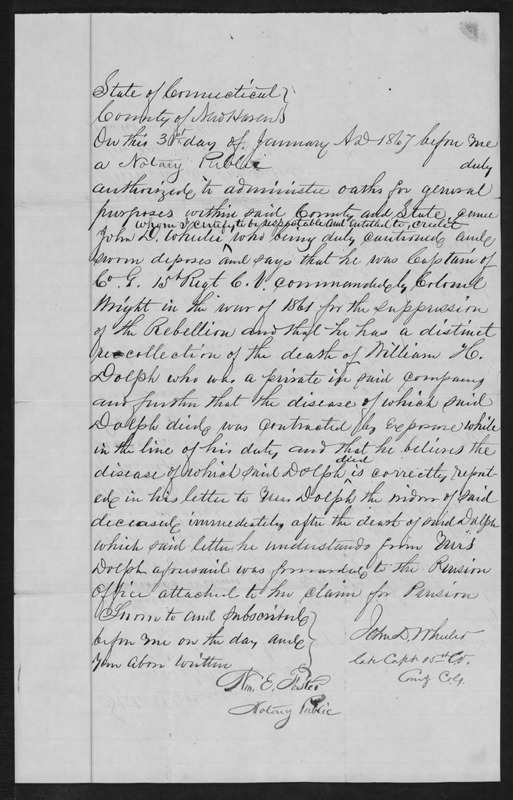 State of Connecticut }
County of New Haven }
On this 31st day of January A.D 1867 before me
a Notary Public duly
authorized to administer oaths for general
purposes within said County and State, came
whom I certify to be respectable and entitled to credit
John D. Wheeler who being duly cautioned and
sworn deposes and says that he was Captain of
Co. G. 15th Regt C.V. commanded by Colonel
Wright in the war of 1861 for the suppression
of the Rebellion and that he has a distinct
recollection of the death of William H.
Dolph who was a private in said company
and further that the disease of which said
Dolph died was contracted by exposure while
in the line of his duty and that he believes the
died
disease of which said Dolph ^ is correctly report-
ed in his letter to Mrs Dolph the widow of said
deceased immediately after the death of said Dolph
which said letter he understands from Mrs
Dolph aforesaid was forwarded to the Pension
Office attached to her claim for Pension
Sworn to and subscribed
before me on the day and
year above written
John D. Wheeler
late Capt 15th C.V.
Comdg Co G.
Wm. E.
Notary Public